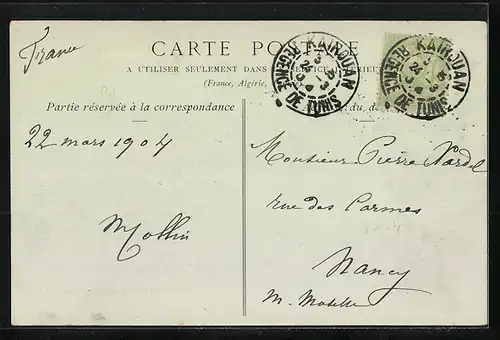 France
CARTE POSTALE
A UTILISER SEULEMENT DANS SERVICE INTÉRIEUR
(France, Algérie,
Partie réservée à la correspondance
du
KAIROUAN
REGENCE DE TUNIS
KAIROUAN
REGENCE DE TUNIS
22 mars 1904
Monsieur Pierre
rue des Carmes
Nancy
M. Moselle